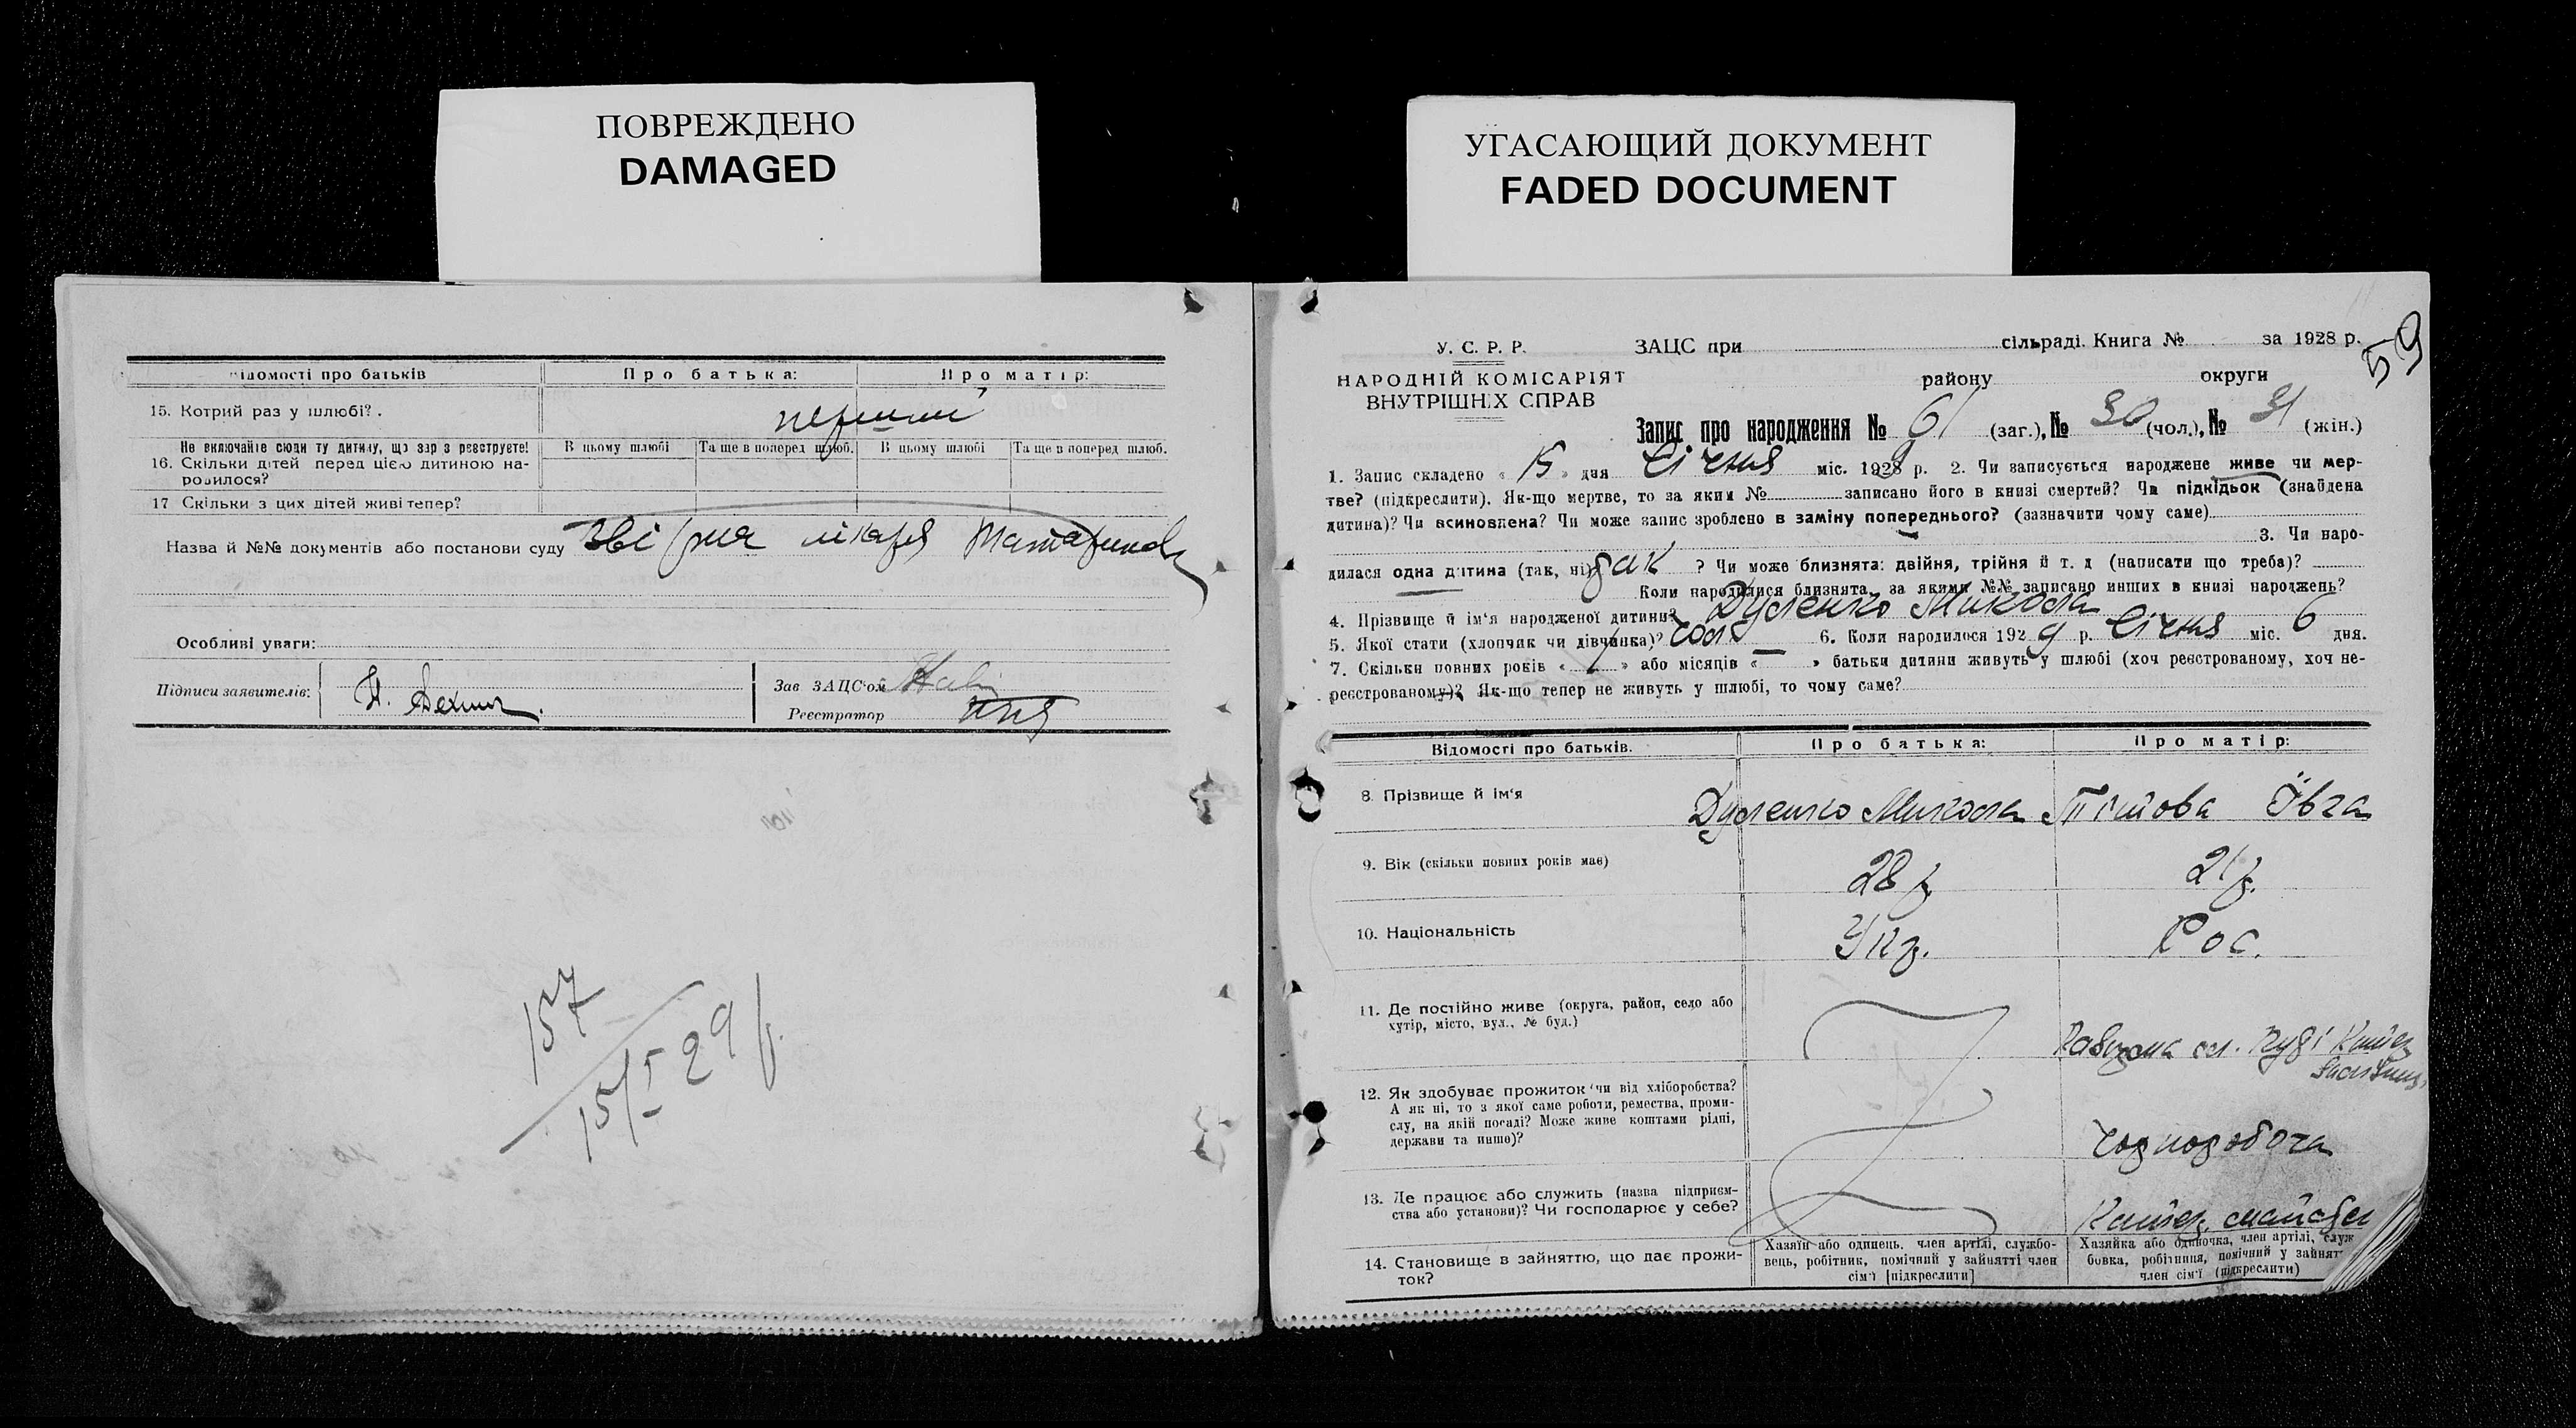 ПОВРЕЖДЕНО
DAMAGED
УГАСАЮЩИЙ ДОКУМЕНТ
FADED DOCUMENT
Відомості про батьків
Про батька:
Про матір:
15. Котрий раз у шлюбі?
перший
Не включайте сюди ту дитину, що зараз реєструєте!
16. Скільки дітей перед цією дитиною народилося?
В цьому шлюбі
Та ще в поперед шлюб.
В цьому шлюбі
Та ще в поперед шлюб.
17 Скільки з цих дітей живі тепер?
Назва й №№ документів або постанови суду
лікаря
Особливі уваги:
Підписи заявителів:
Зав ЗАЦС'ом
Реєстратор
157
15/I 29 р.
59
У. С. Р. Р.
НАРОДНІЙ КОМІСАРІЯТ
ВНУТРІШНІХ СПРАВ
ЗАЦС при сільраді. Книга № за 1928 р.
району округи
Запис про народження № 61 (заг.), № 30 (чол.), № 31 (жін.)
1. Запис складено « 15 » дня Січня міс. 1929 р. 2. Чи записується народжене живе чи мер-
тве? (підкреслити). Як-що мертве, то за яким № записано його в книзі смертей? Чи підкідьок (знайдена
дитина)? Чи всиновлена? Чи може запис зроблено в заміну попереднього? (зазначити чому саме)
3. Чи наро-
дилася одна дитина (так, ні) так ? Чи може близнята: двійня, трійня й т. д (написати що треба)?
Коли народилися близнята, за якими №№ записано инших в книзі народжень?
4. Прізвище й ім'я народженої дитини? Дуленко Микола
5. Якої стати (хлопчик чи дівчинка)? чол. 6. Коли народилося 1929 р. Січня міс. 6 дня.
7. Скільки повних років « 1 » або місяців « — » батьки дитини живуть у шлюбі (хоч реєстрованому, хоч не-
реєстрованому)? Як-що тепер не живуть у шлюбі, то чому саме?
Відомості про батьків.
Про батька:
Про матір:
8. Прізвище й ім'я
Дуленко Микола
Тітова Ївга
9. Вік (скільки повних років має)
28 р.
21 р.
10. Національність
Укр.
Рос.
11. Де постійно живе (округа, район, село або
хутір, місто, вул., № буд.)
12. Як здобуває прожиток чи від хліборобства?
А як ні, то з якої саме роботи, ремества, проми-
слу, на якій посаді? Може живе коштами рідні,
держави та инше)?
чорноробоча
13. Де працює або служить (назва підприєм-
ства або установи)? Чи господарює у себе?
14. Становище в зайняттю, що дає прожи-
ток?
Хазяїн або одинець, член артілі, службо-
вець, робітник, помічний у зайнятті член
сім'ї [підкреслити]
Хазяйка або одиночка, член артілі, служ
бовка, робітниця, помічний у зайнят
член сім'ї (підкреслити)